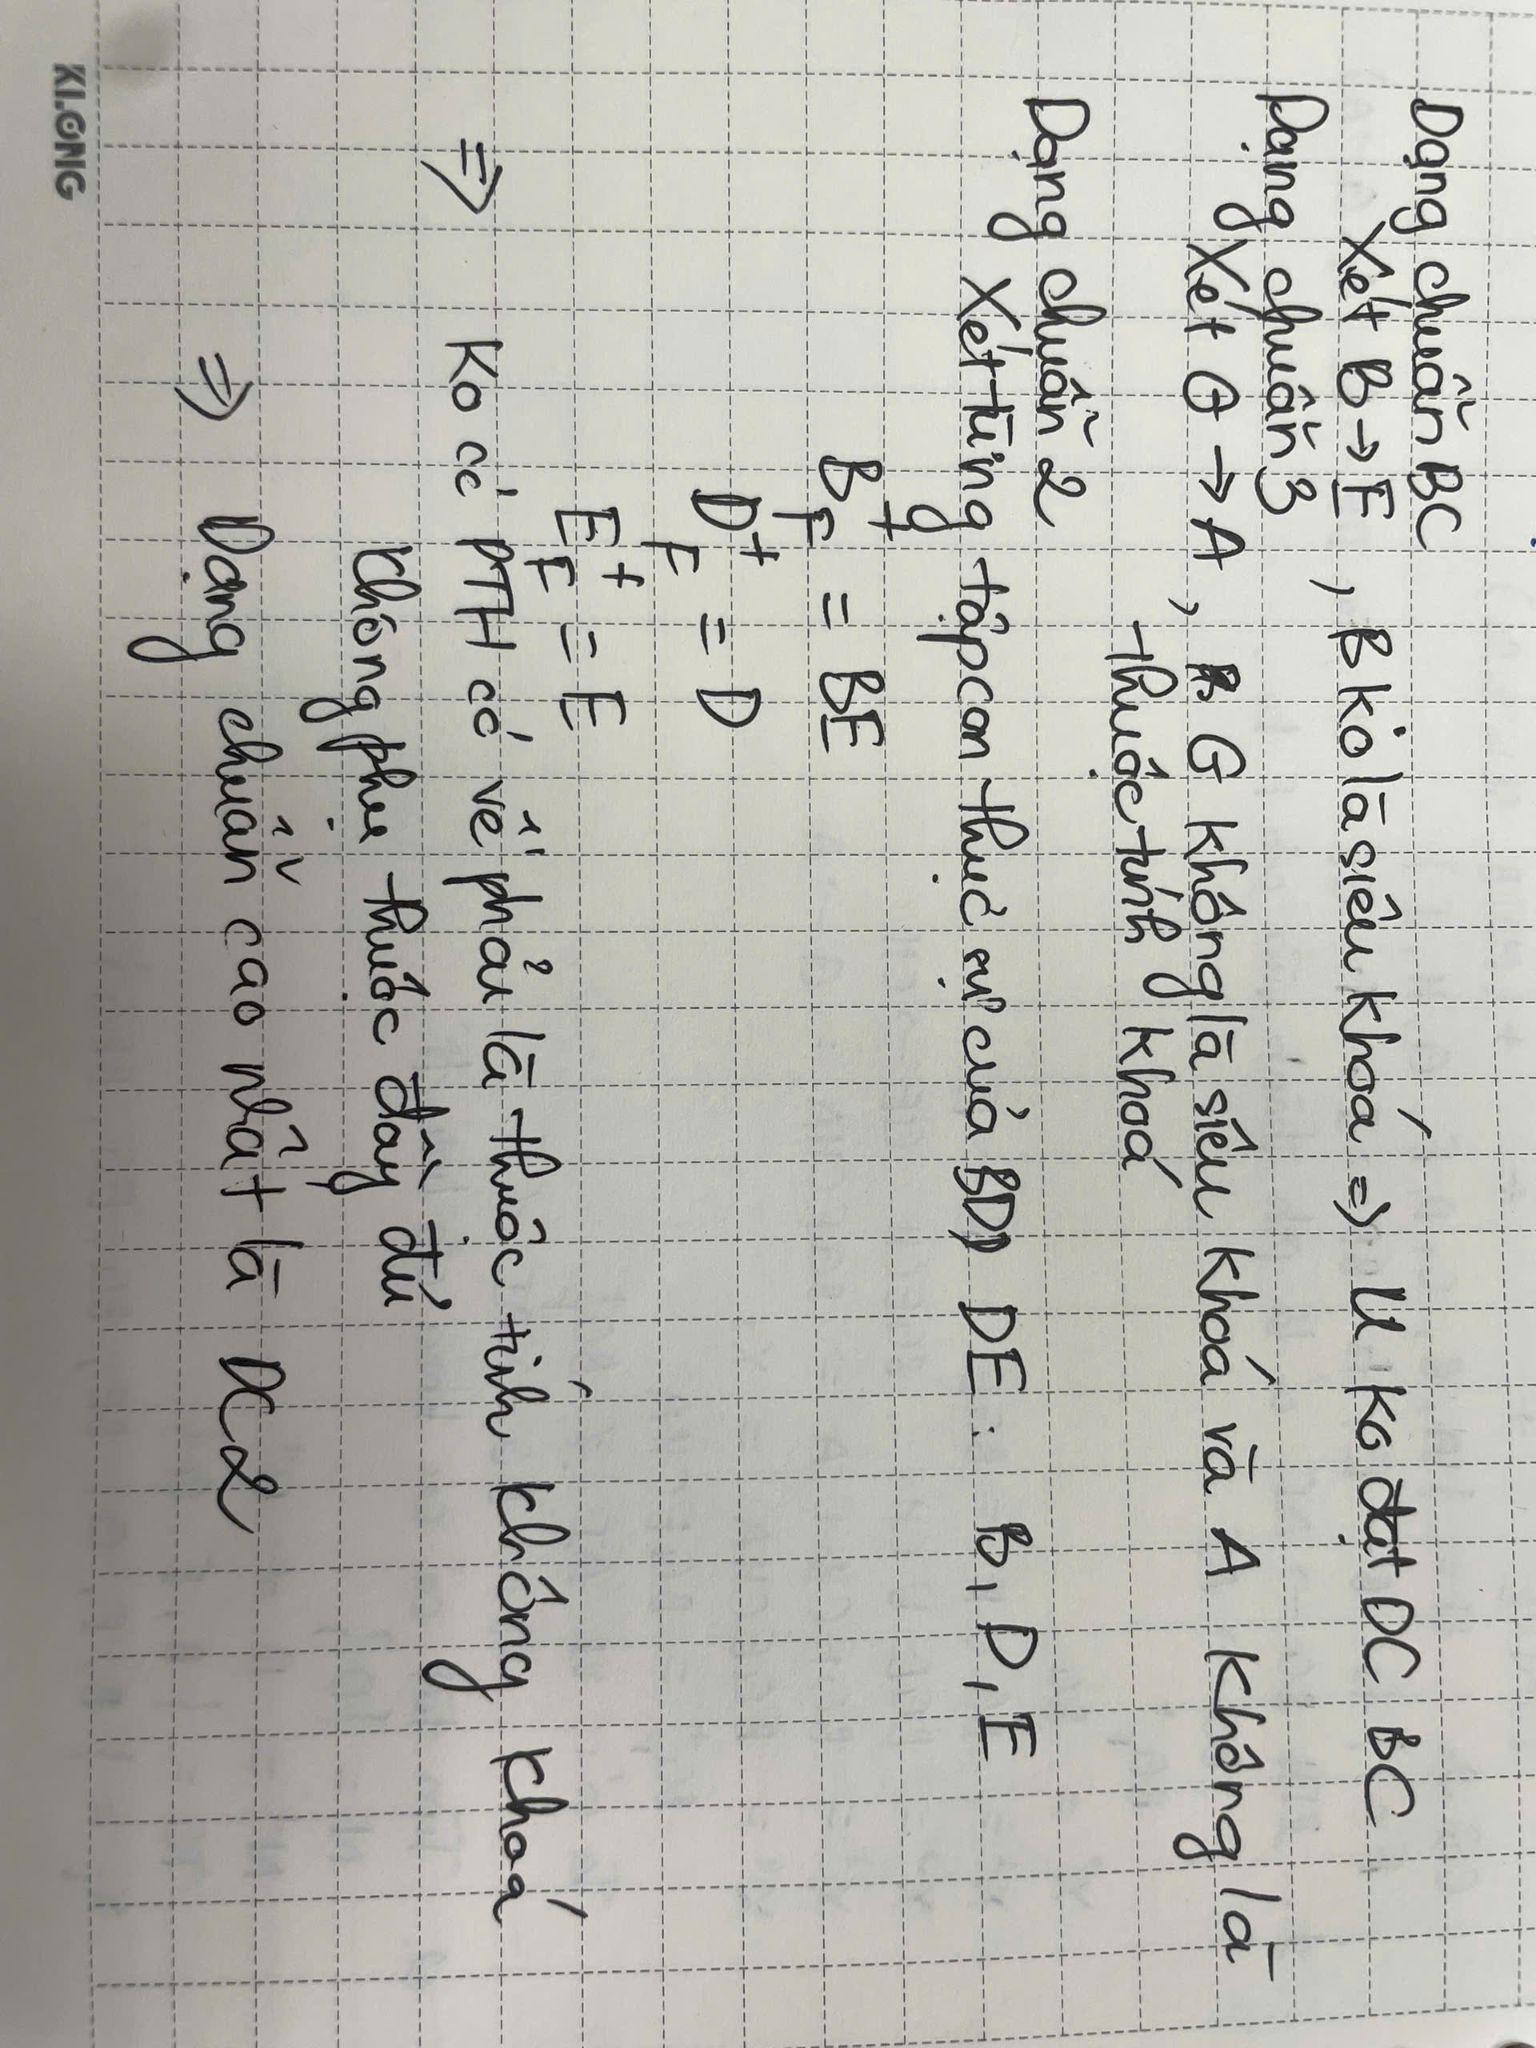 Dạng chuẩn BC
Xét B → E, B ko là siêu khoá => U ko đạt DC BC
Dạng chuẩn 3
Xét G → A, G không là siêu khoá và A không là
thuộc tính khoá
Dạng chuẩn 2
Xét từng tập con thực sự của BD, DE: B, D, E
B⁺F = BE
D⁺F = D
E⁺F = E
=> Ko có PTH có vế phải là thuộc tính không khoá
không phụ thuộc đầy đủ
=> Dạng chuẩn cao nhất là DC2
KLONG